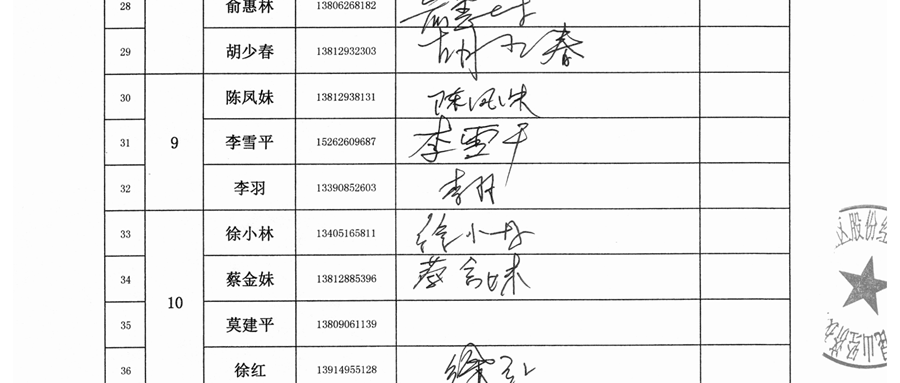 28 俞惠林 13806268182 俞惠林
29 胡少春 13812932303 胡少春
30 陈凤妹 13812938131 陈凤妹
31 李雪平 15262609687 李雪平
9
32 李羽 13390852603 李羽
33 徐小林 13405165811 徐小林
34 蔡金妹 13812885396 蔡金妹
10
35 莫建平 13809061139
36 徐红 13914955128 徐红
区股份经
昆山经济